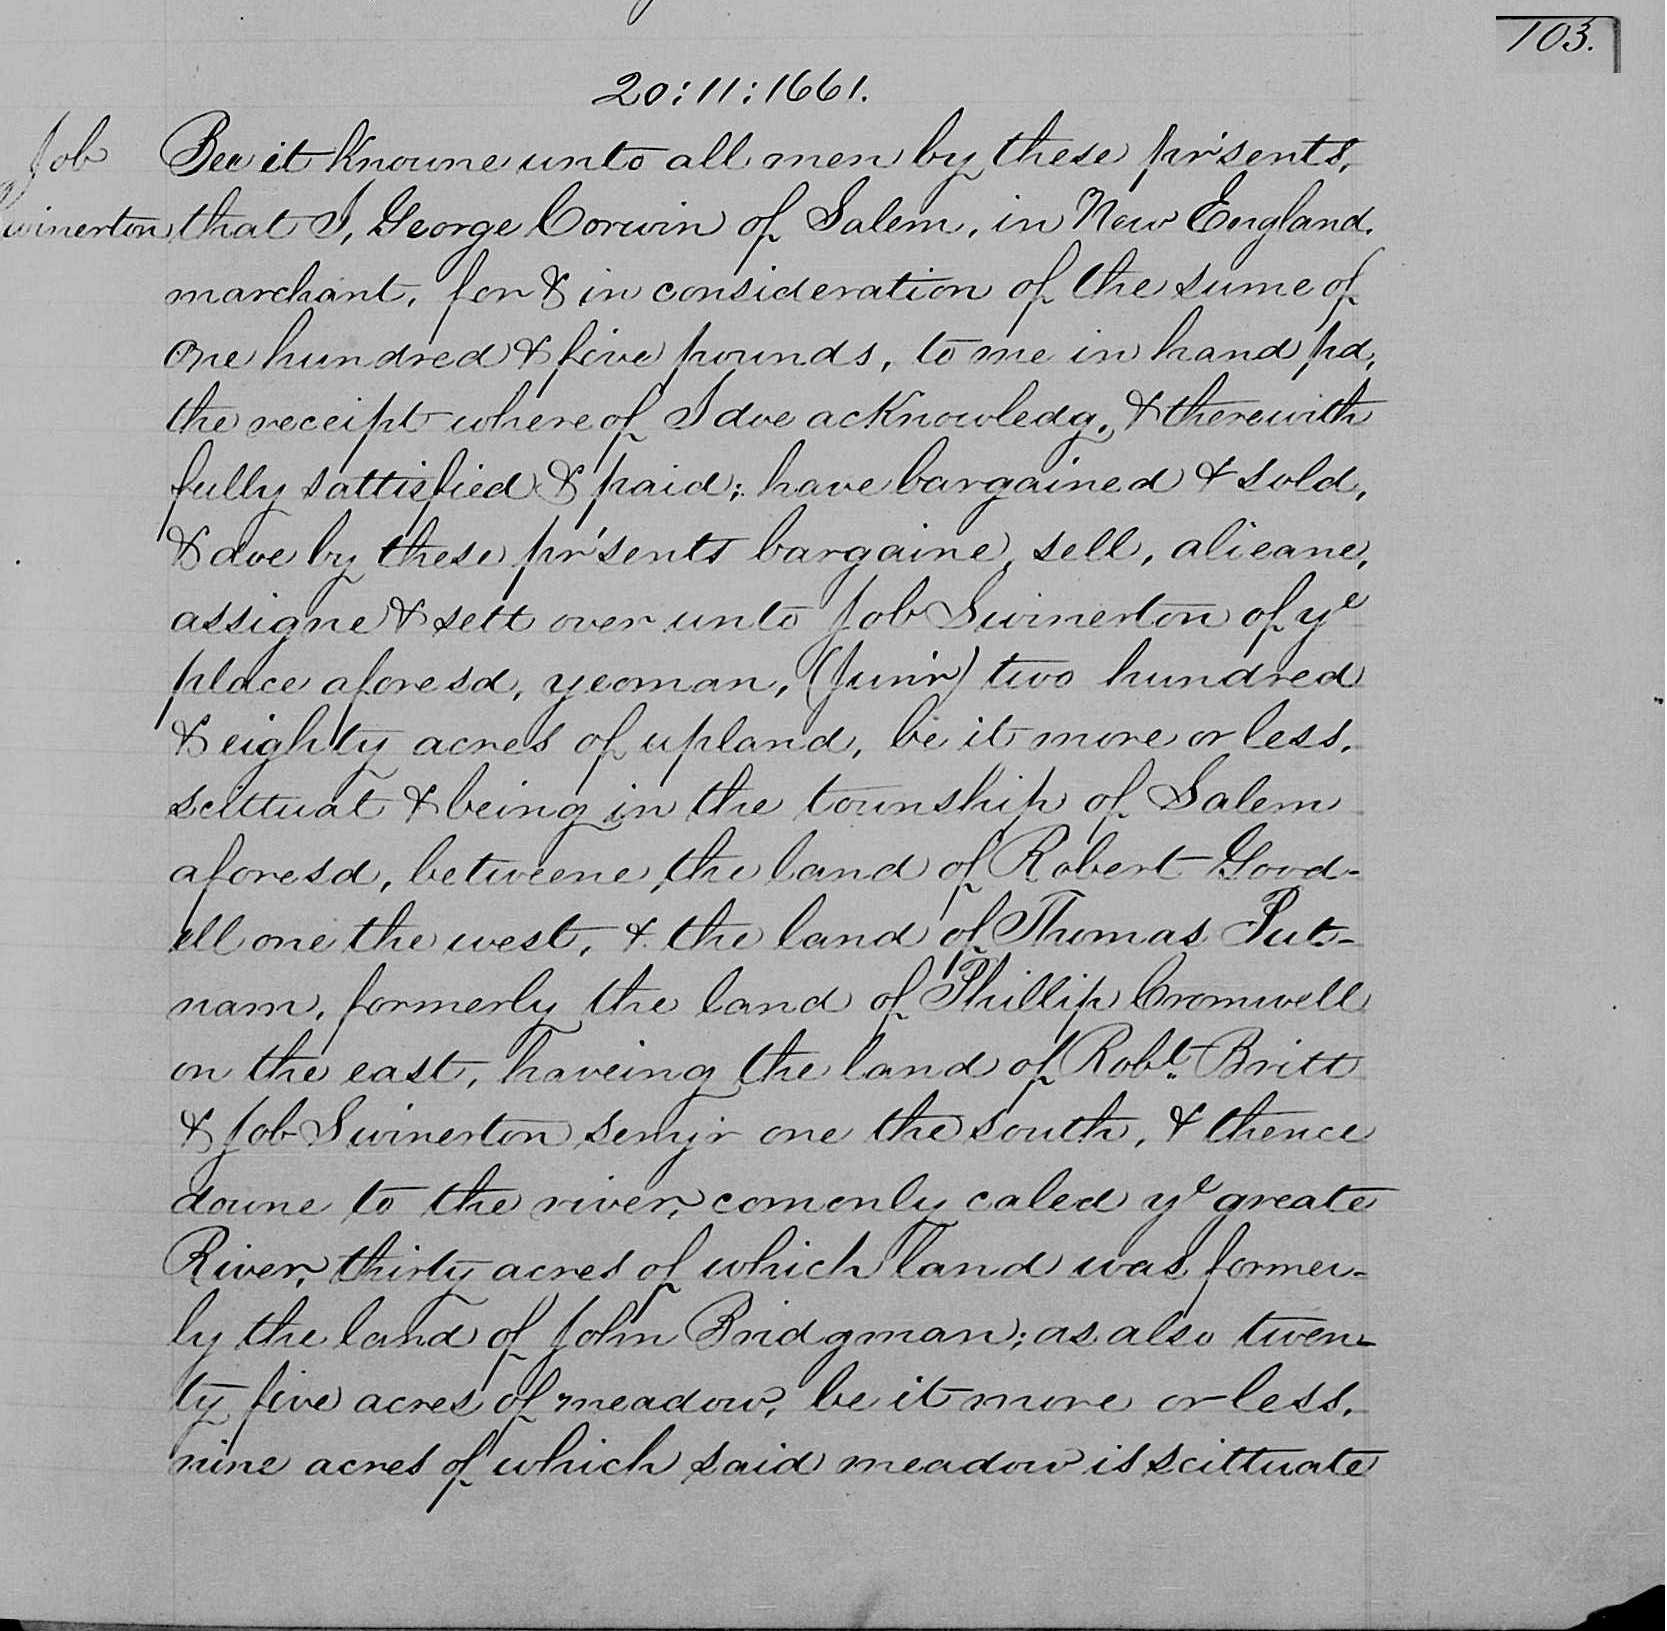 103.
20:11:1661.
Job
Swinerton
Bee it knowne unto all men by these pr'sents,
that I, George Corwin of Salem, in New England,
marchant, for & in consideration of the sume of
one hundred & five pounds, to me in hand pd,
the receipt whereof I doe acknowledg, & therewith
fully sattisfied & paid; have bargained & sold,
& doe by these pr'sents bargaine, sell, alieane,
assigne & sett over unto Job Swinerton of ye
place aforesd, yeoman, (Jun'r) two hundred
& eighty acres of upland, be it more or less,
scittuat & being in the township of Salem
aforesd, betweene the land of Robert Good-
ell one the west, & the land of Thomas Put-
nam, formerly the land of Phillip Cromwell
on the east, haveing the land of Robt. Britt
& Job Swinerton seny'r one the south, & thence
downe to the river, comonly caled ye greate
River, thirty acres of which land was former-
ly the land of John Bridgman; as also twen-
ty five acres of meadow, be it more or less,
nine acres of which said meadow is scittuate